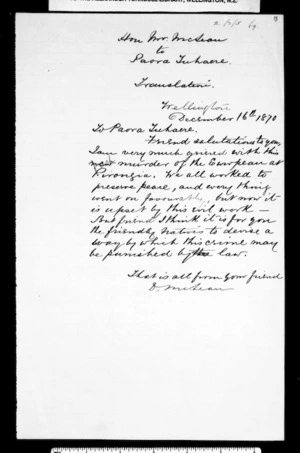 Hon Mr McLean
to
Paora Tuhaere.
Translation.
Wellington
December 16th 1870
To Paora Tuhaere.
Friend salutations to you,
I am very much grieved with this
new murder of the European at
Pirongia. We all worked to
preserve peace, and every thing
went on favourably, but now it
is upset by this evil work —
And friend I think it is for you
the friendly Natives to devise a
way by which this crime may
be punished by the law.
That is all from your friend
D. McLean